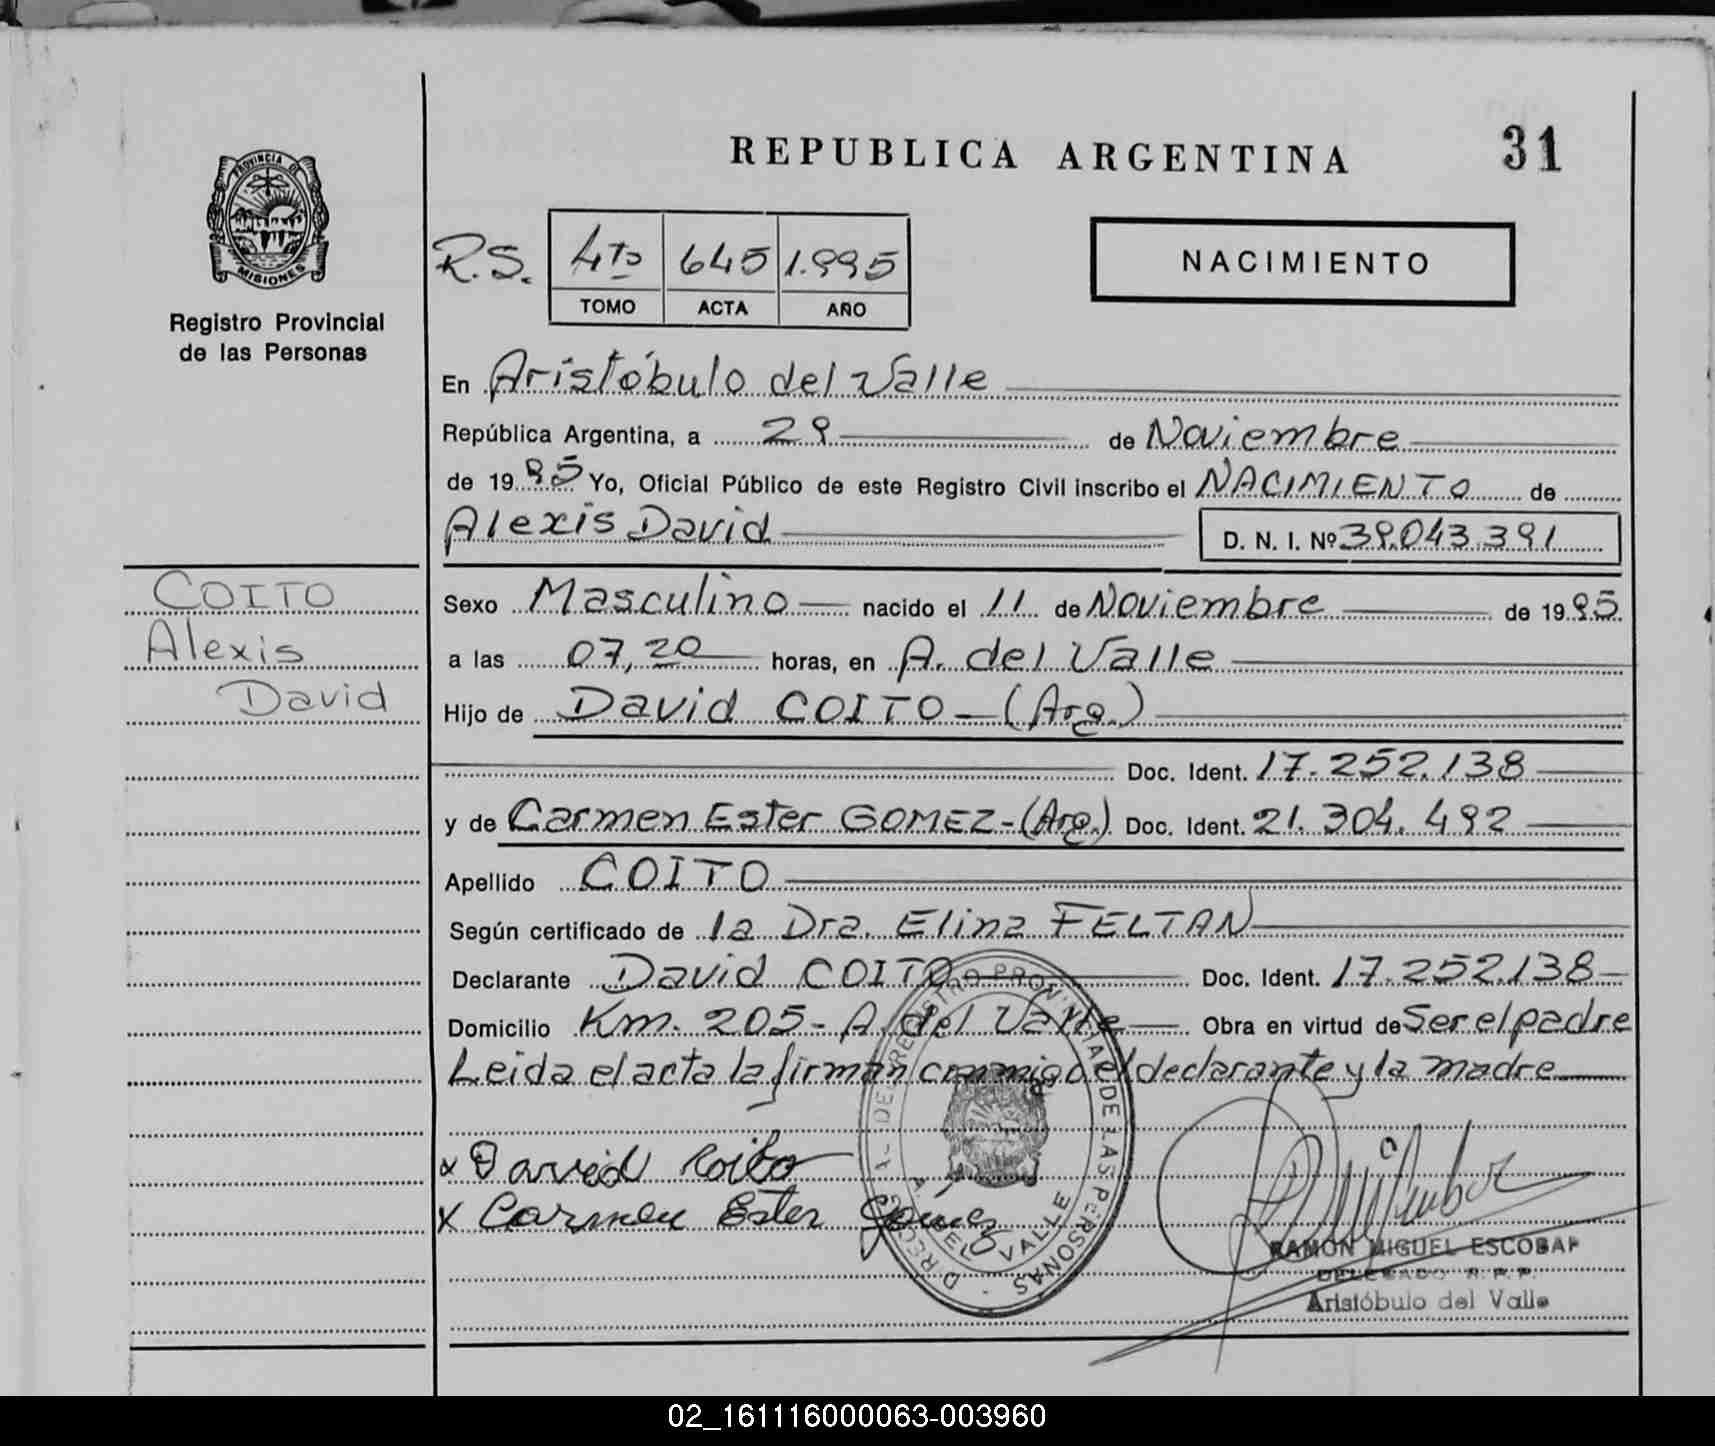 REPUBLICA ARGENTINA
31
PROVINCIA DE
MISIONES
Registro Provincial
de las Personas
R.S.
4to 645 1.995
TOMO ACTA AÑO
NACIMIENTO
En Aristóbulo del Valle
República Argentina, a 29 de Noviembre
de 1995 Yo, Oficial Público de este Registro Civil inscribo el NACIMIENTO de
Alexis David D. N. I. Nº 39.043.391
COITO
Alexis
David
Sexo Masculino nacido el 11 de Noviembre de 1995
a las 07,20 horas, en A. del Valle
Hijo de David COITO - (Arg.)
Doc. Ident. 17.252.138
y de Carmen Ester GOMEZ - (Arg.) Doc. Ident. 21.304.492
Apellido COITO
Según certificado de la Dra. Elina FELTAN
Declarante David COITO Doc. Ident. 17.252.138
Domicilio Km. 205 - A. del Valle Obra en virtud de Ser el padre
Leida el acta la firman conmigo el declarante y la madre
x David Coito
x Carmen Ester Gómez
DIRECC. GRAL. DEL REGISTRO PROVINCIAL DE LAS PERSONAS
A. DEL VALLE
RAMON MIGUEL ESCOBAR
DELEGADO R.P.P.
Aristóbulo del Valle
02_161116000063-003960